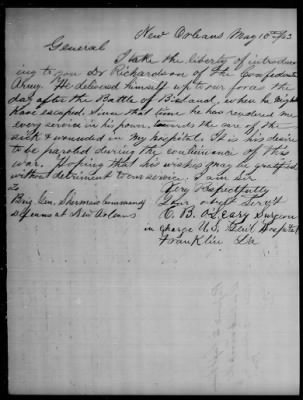 New Orleans May 10th /63
General
I take the liberty of introduc
ing to you Dr Richardson of the Confederate
Army. He delivered himself up to our forces the
day after the Battle of Bisland, when he might
have escaped. Since that time he has rendered me
every service in his power, towards the care of the
sick & wounded in my hospital. It is his desire
to be paroled during the continuance of this
war. Hoping that his wishes may be gratified
without detriment to our service. I am Sir
Very Respectfully
Your obdt Servt
Brig Gen. Sherman Commandg
Defenses at New Orleans
C. B. O'Leary Surgeon
in charge U.S. Genl Hospital
Franklin La